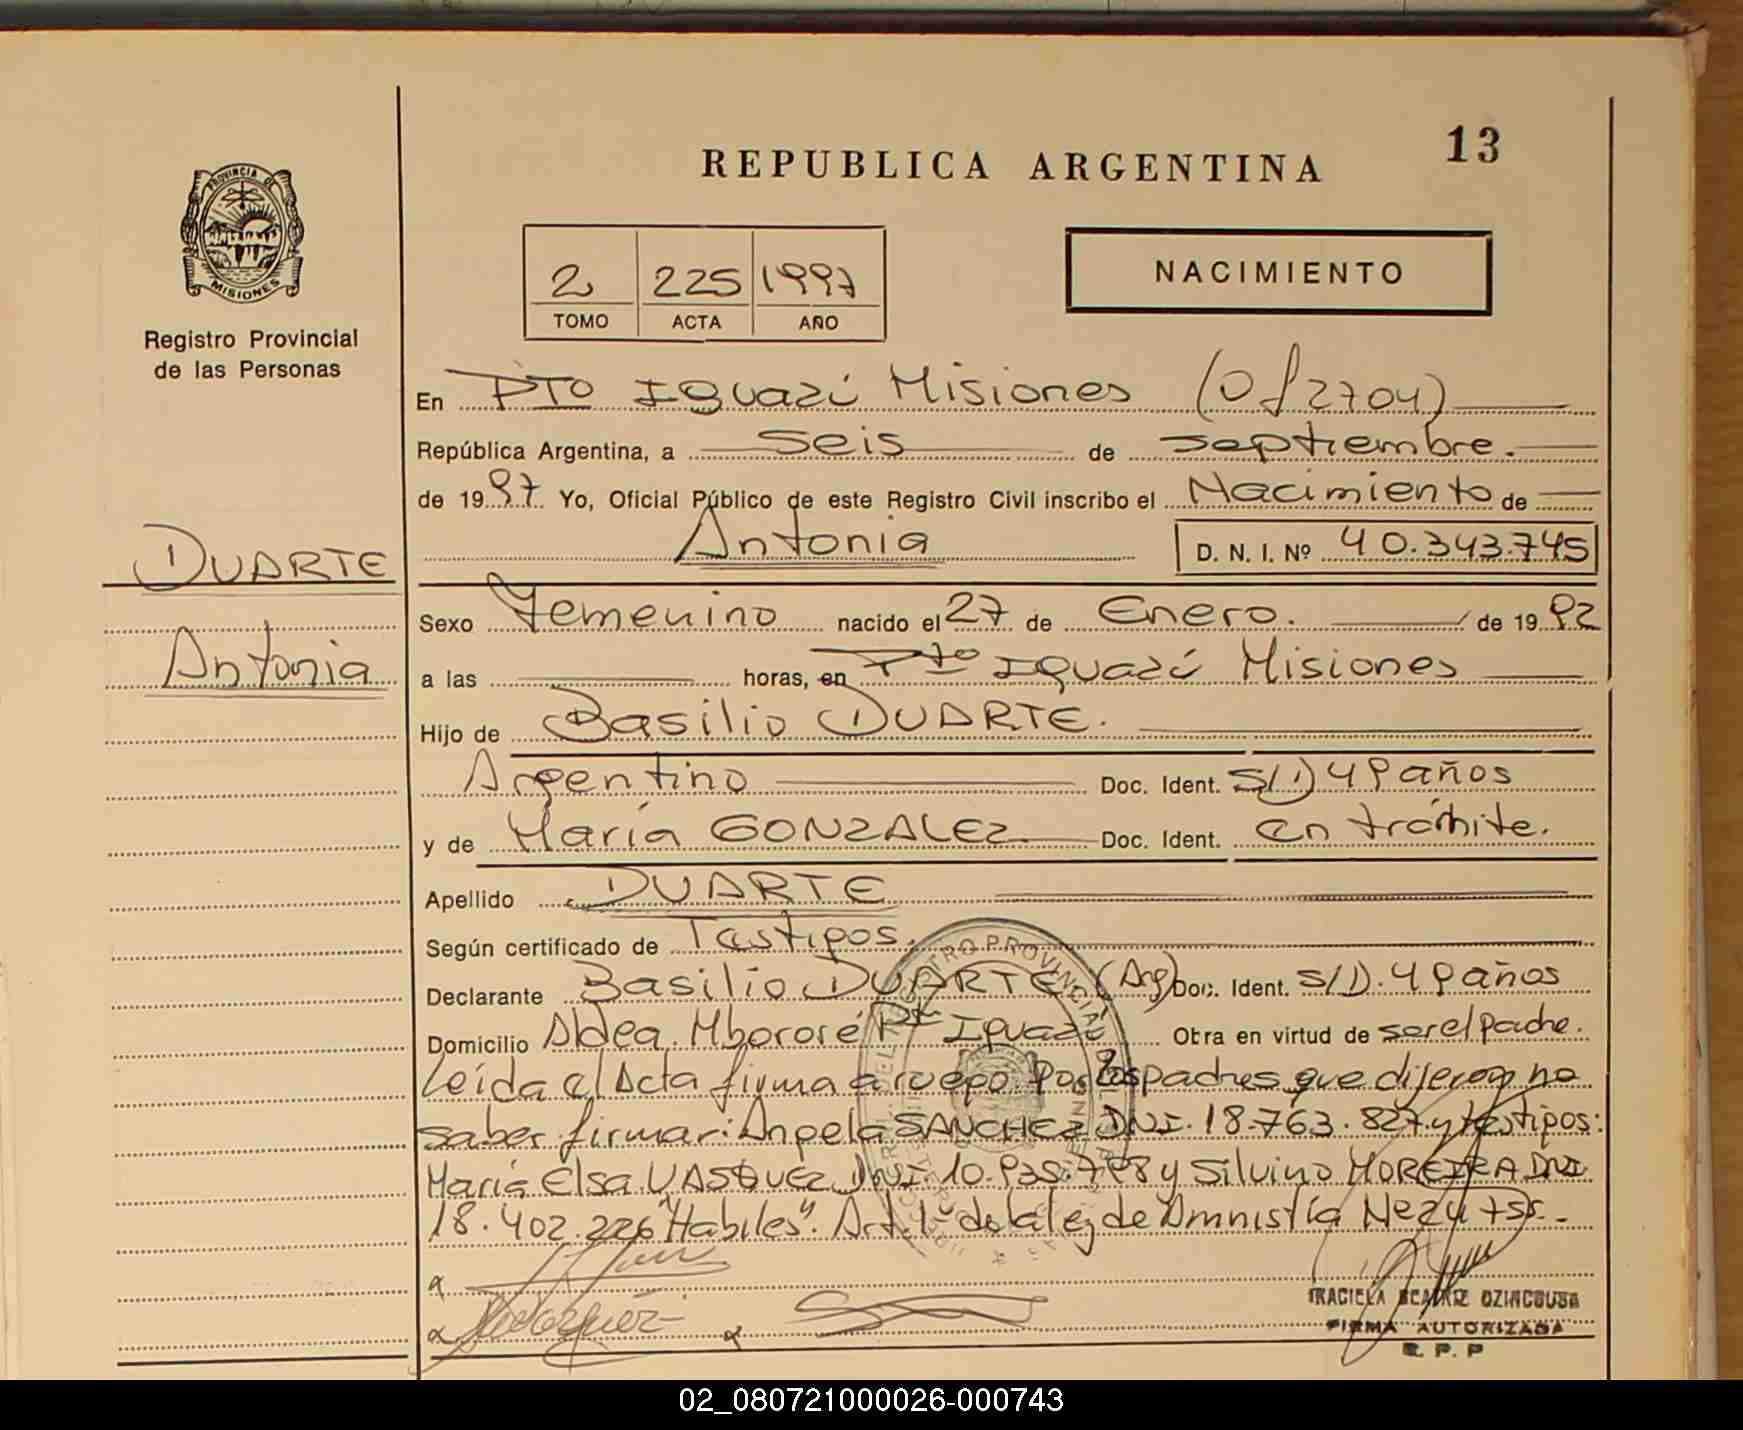 REPUBLICA ARGENTINA
13
PROVINCIA DE
MISIONES
Registro Provincial
de las Personas
2 225 1997
TOMO ACTA AÑO
NACIMIENTO
En PTO Iguazú Misiones (Of 2704)
República Argentina, a seis de septiembre.
de 1997 Yo, Oficial Público de este Registro Civil inscribo el Nacimiento de
Antonia D. N. I. Nº 40.343.745
DUARTE
Antonia
Sexo Femenino nacido el 27 de Enero. de 1992
a las horas, en Pto Iguazú Misiones
Hijo de Basilio DUARTE.
Argentino Doc. Ident. S/D 49 años
y de María GONZALEZ Doc. Ident. en trámite.
Apellido DUARTE
Según certificado de Testigos.
Declarante Basilio DUARTE (Arg) Doc. Ident. S/D. 49 años
Domicilio Aldea Mbororé Pto Iguazú Obra en virtud de ser el padre.
Leída el Acta firma a ruego Por los padres que dijeron no
saber firmar: Angela SANCHEZ DNI. 18.763.827 y testigos:
María Elsa VASQUEZ DNI. 10.935.798 y Silvino MOREIRA DNI
18.402.226 "Habiles". Art. 1º de la ley de Amnistía Nº
REGISTRO PROVINCIAL
FIRMA AUTORIZADA
R. P. P
02_080721000026-000743